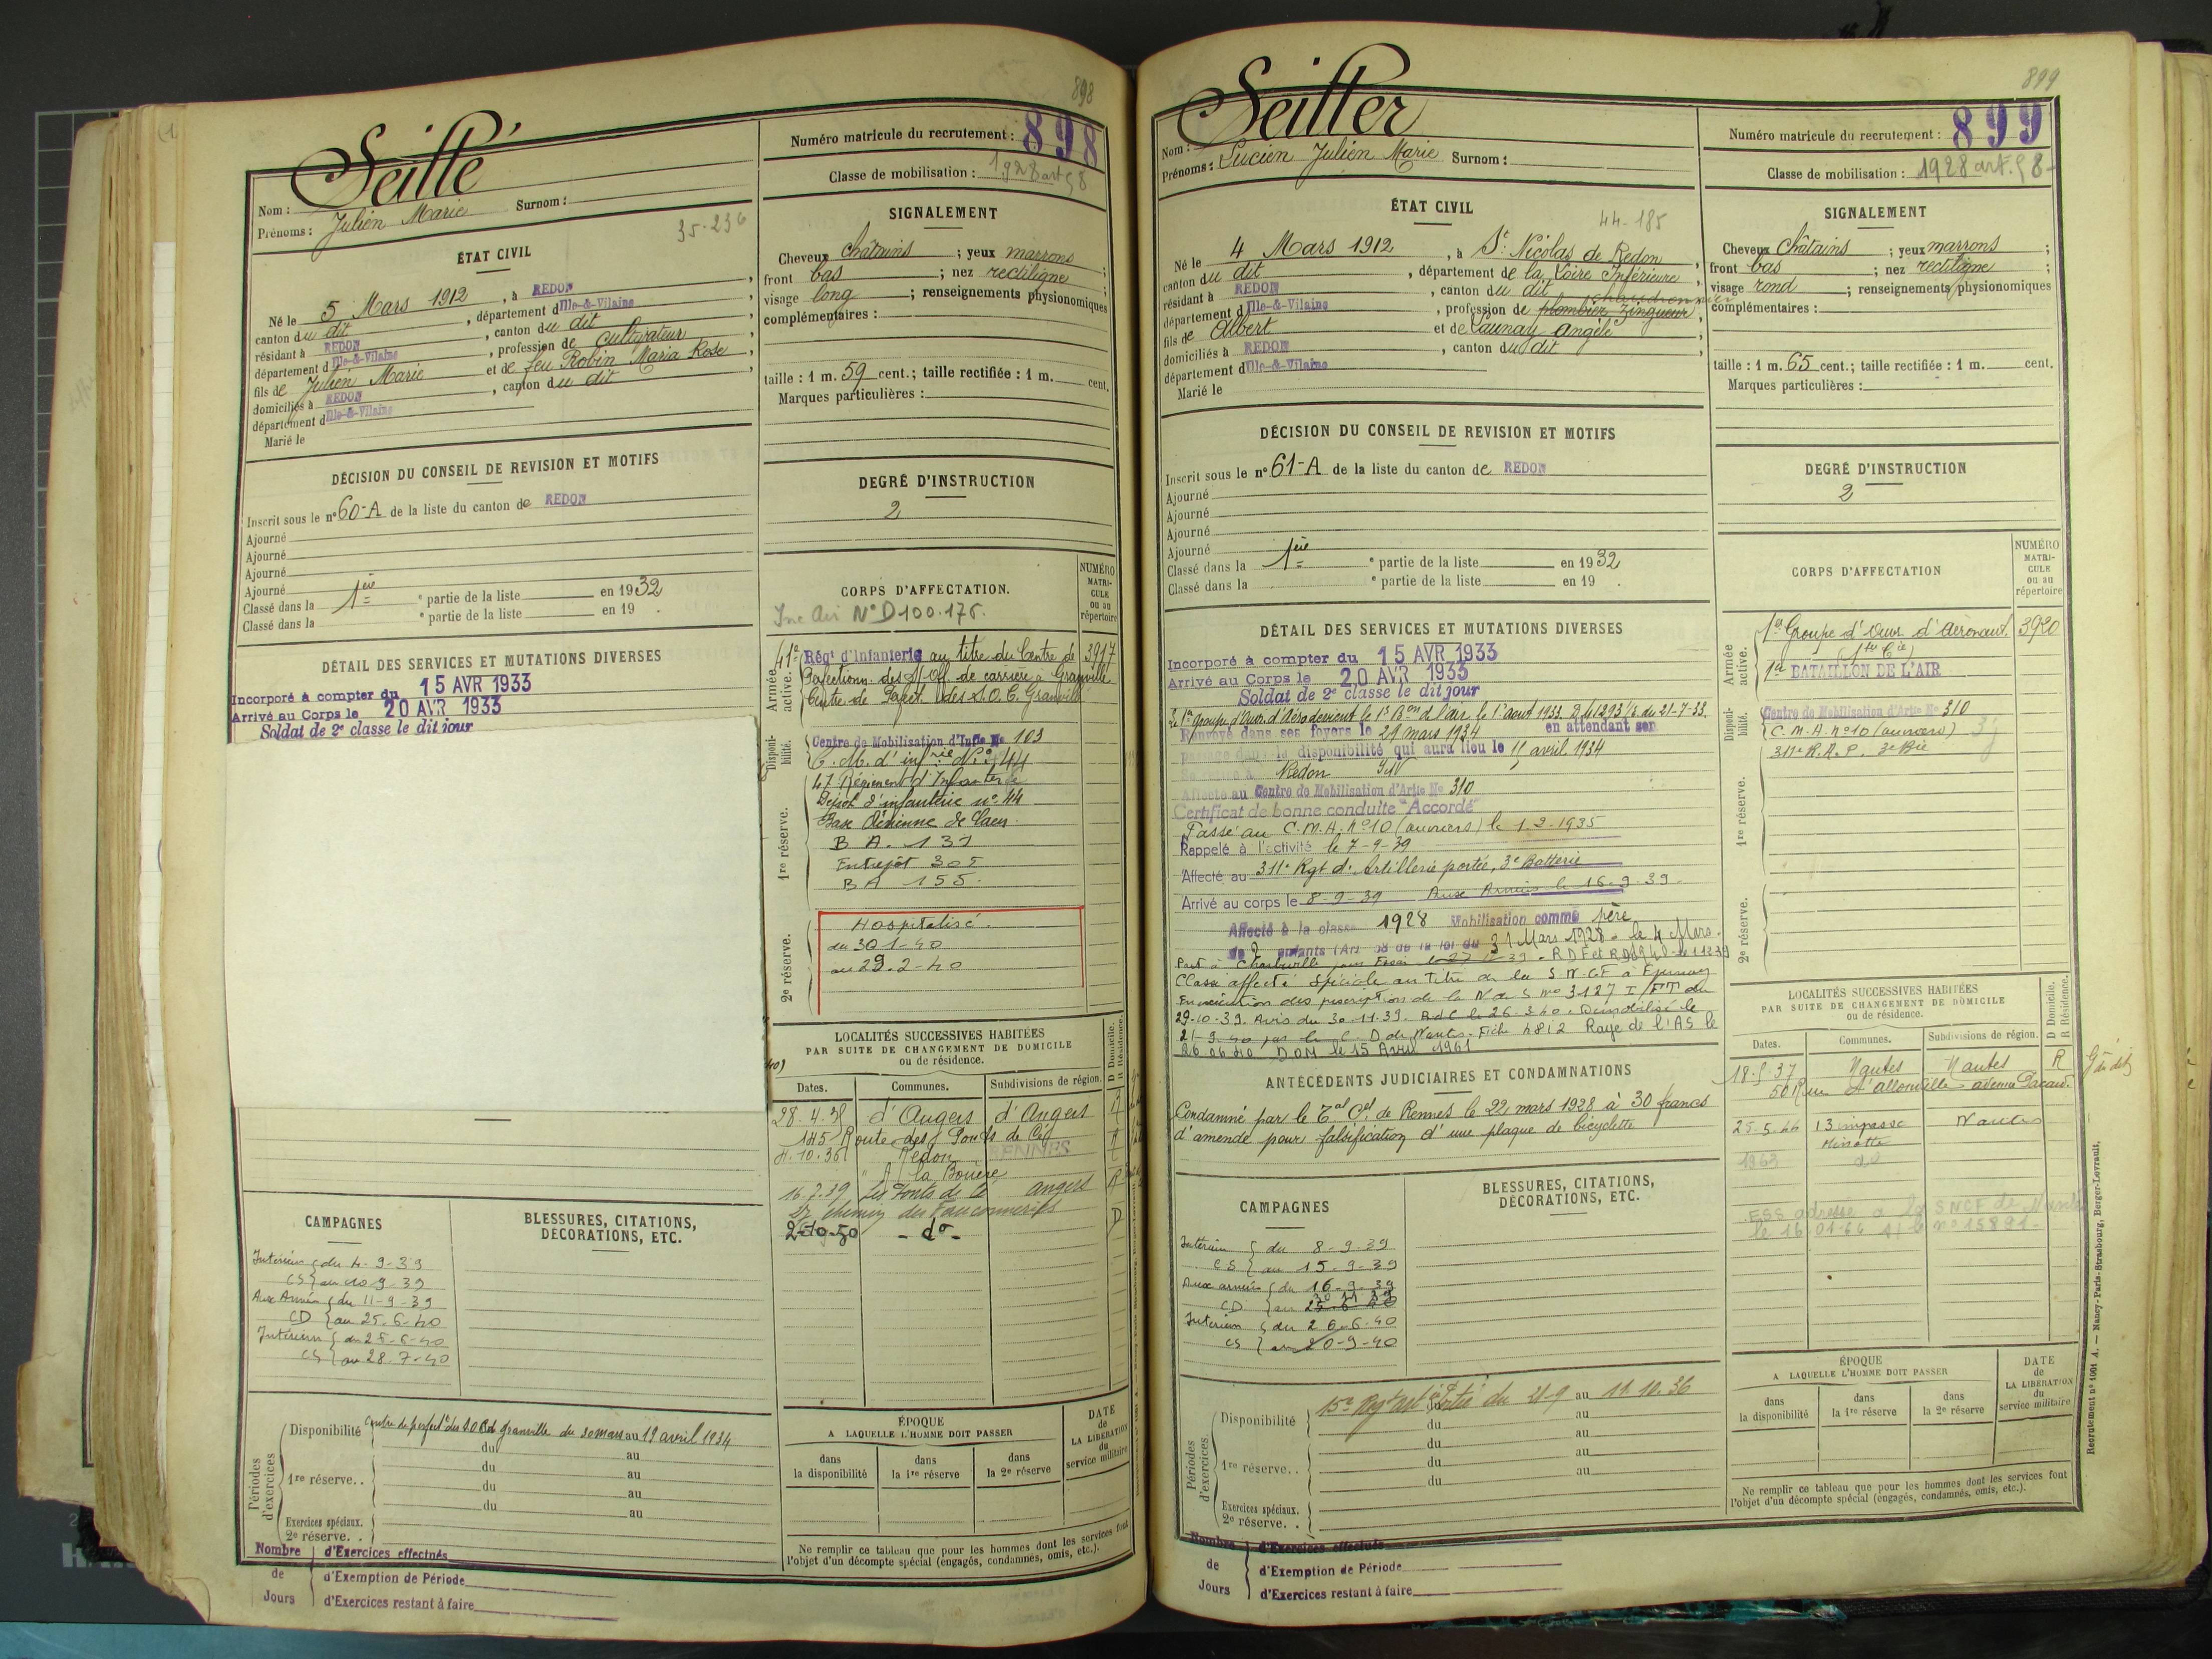 898
Seillé
Nom :
Prénoms : Julien Marie Surnom :
35-236
Numéro matricule du recrutement : 898
Classe de mobilisation : 1928 art 58
ÉTAT CIVIL
Né le 5 Mars 1912, à REDON,
canton du dit, département d Ille-&-Vilaine,
résidant à REDON, canton du dit,
département d Ille-&-Vilaine, profession de cultivateur,
fils de Julien Marie et de feu Robin Maria Rose,
domiciliés à REDON, canton du dit,
département d Ille-&-Vilaine
Marié le
SIGNALEMENT
Cheveux châtains ; yeux marrons ;
front bas ; nez rectiligne ;
visage long ; renseignements physionomiques
complémentaires :
taille : 1 m. 59 cent.; taille rectifiée : 1 m. cent.
Marques particulières :
DÉCISION DU CONSEIL DE REVISION ET MOTIFS
Inscrit sous le nº 60-A de la liste du canton de REDON
Ajourné
Ajourné
Ajourné
Ajourné
Classé dans la 1ère e partie de la liste en 1932
Classé dans la e partie de la liste en 19 .
DEGRÉ D'INSTRUCTION
2
DÉTAIL DES SERVICES ET MUTATIONS DIVERSES
Incorporé à compter du 15 AVR 1933
Arrivé au Corps le 20 AVR 1933
Soldat de 2e classe le dit jour
CORPS D'AFFECTATION.
NUMÉRO MATRICULE ou au répertoire
Air Nº D100.176.
Armée active.
41e Régt d'Infanterie au titre du Centre de 3917
Perfectionn. des S/Off. de carrière à Granville
Centre de Perfect. des S.O.C. Granville
Disponibilité.
Centre de Mobilisation d'Infie Nº 103
C. M. d'infrie Nº 44
1re réserve.
47 Régiment d'Infanterie
Dépôt d'infanterie nº 44
Base Aérienne de Caen.
B A. 131
Entrepôt 305
B A 155.
2e réserve.
Hospitalisé.
du 30 1-40
au 29.2-40
LOCALITÉS SUCCESSIVES HABITÉES
PAR SUITE DE CHANGEMENT DE DOMICILE
ou de résidence.
D Domicile. R Résidence.
Dates. Communes. Subdivisions de région.
28.4.38 d'Angers d'Angers
145 Route des Ponts de Cé
4.10.36 Redon RENNES
A la Bouère
16.7.39 Les Ponts de Cé Angers R
chemin des Fauconneries
2-10-50 - do - D
CAMPAGNES
BLESSURES, CITATIONS,
DÉCORATIONS, ETC.
Intérieur du 4-9-39
CS au 10 9-39
Aux Armées du 11-9-39
CD au 25-6-40
Intérieur du 26-6-40
CS au 28.7-40
Périodes d'exercices
Disponibilité Centre de perfect. des S.O.C. de Granville du 30 mars au 19 avril 1934
du au
1re réserve.. du au
du au
du au
Exercices spéciaux.
2e réserve. .
Nombre de Jours
d'Exercices effectués
d'Exemption de Période
d'Exercices restant à faire
ÉPOQUE
A LAQUELLE L'HOMME DOIT PASSER
dans la disponibilité
dans la 1re réserve
dans la 2e réserve
DATE de LA LIBÉRATION du service militaire
Ne remplir ce tableau que pour les hommes dont les services font
l'objet d'un décompte spécial (engagés, condamnés, omis, etc.).
899
Seiller
Nom :
Prénoms : Lucien Julien Marie Surnom :
Numéro matricule du recrutement : 899
Classe de mobilisation : 1928 art. 58
ÉTAT CIVIL
44-185
Né le 4 Mars 1912, à St Nicolas de Redon,
canton du dit, département de la Loire Inférieure,
résidant à REDON, canton du dit,
chaudronnier
département d Ille-&-Vilaine, profession de plombier zingueur,
fils de Albert et de Launay Angèle,
domiciliés à REDON, canton du dit
département d Ille-&-Vilaine
Marié le
SIGNALEMENT
Cheveux châtains ; yeux marrons ;
front bas ; nez rectiligne ;
visage rond ; renseignements physionomiques
complémentaires :
taille : 1 m. 65 cent.; taille rectifiée : 1 m. cent.
Marques particulières :
DÉCISION DU CONSEIL DE REVISION ET MOTIFS
Inscrit sous le nº 61-A de la liste du canton de REDON
Ajourné
Ajourné
Ajourné
Ajourné
Classé dans la 1ère e partie de la liste en 1932
Classé dans la e partie de la liste en 19 .
DEGRÉ D'INSTRUCTION
2
DÉTAIL DES SERVICES ET MUTATIONS DIVERSES
Incorporé à compter du 15 AVR 1933
Arrivé au Corps le 20 AVR 1933
Soldat de 2e classe le dit jour
Le 1er Groupe d'Ouvr. d'Aéro devient le 1er Bon de l'air le 1er août 1933. du 21-7-33.
Renvoyé dans ses foyers le 29 mars 1934 en attendant son
passage dans la disponibilité qui aura lieu le 15 avril 1934
Se retire à Redon I&V
Affecté au Centre de Mobilisation d'Artie Nº 310
Certificat de bonne conduite "Accordé"
Passé au C.M.A. nº 10 (ouvriers) le 1.2-1935
Rappelé à l'activité le 7-9-39
Affecté au 311e Rgt d'Artillerie portée, 3e Batterie
Arrivé au corps le 8-9-39 Aux Armées le 16-9-39.
Affecté à la classe 1928 Mobilisation comme père
de 2 enfants (Art. 58 de la loi du 31 Mars 1928 - le 4 Mars
Classé affecté Spéciale au Titre de la S.N.C.F à Epernay
En exécution des prescriptions de la N de S nº 3127 du
29-10-39. Avis du 30-11-39. Rdl le 26.3.40. Démobilisé le
21-9-40 par le C.D de Nantes. Fiche 4812 Rayé de l'AS le
26 06 40 DOM le 15 Avril 1961
ANTÉCÉDENTS JUDICIAIRES ET CONDAMNATIONS
Condamné par le Tal Cel de Rennes le 22 mars 1928 à 30 francs
d'amende pour falsification d'une plaque de bicyclette
CORPS D'AFFECTATION
NUMÉRO MATRICULE ou au répertoire
Armée active.
1er Groupe d'Ouvr. d'Aéronaut. 3920
(1ère Cie)
1er BATAILLON DE L'AIR
Disponibilité.
Centre de Mobilisation d'Artie Nº 310
C.M.A. nº 10 (ouvriers)
311e R.A.P. 3e Bie
1re réserve.
2e réserve.
LOCALITÉS SUCCESSIVES HABITÉES
PAR SUITE DE CHANGEMENT DE DOMICILE
ou de résidence.
D Domicile. R Résidence.
Dates. Communes. Subdivisions de région.
18.5.37 Nantes Nantes R
50 Rue d'Allonville
25.5.44 13 impasse Nantes
1963 do
ESS adressé à la SNCF de Nantes
le 16 01-64 nº 15891-
CAMPAGNES
BLESSURES, CITATIONS,
DÉCORATIONS, ETC.
Intérieur du 8-9-39
CS au 15-9-39
Aux armées du 16-9-39
30 11 39
CD au 25-6-40
Intérieur du 26-6-40
CS au 20-9-40
Périodes d'exercices.
Disponibilité 15e Rgt Art Portée du 21-9 au 11.10.36
du au
du au
1re réserve. . du au
du au
Exercices spéciaux.
2e réserve. .
Nombre de Jours
d'Exercices effectués
d'Exemption de Période
d'Exercices restant à faire
ÉPOQUE
A LAQUELLE L'HOMME DOIT PASSER
dans la disponibilité
dans la 1re réserve
dans la 2e réserve
DATE de LA LIBÉRATION du service militaire
Ne remplir ce tableau que pour les hommes dont les services font
l'objet d'un décompte spécial (engagés, condamnés, omis, etc.).
Recrutement nº 1001 A. — Nancy-Paris-Strasbourg, Berger-Levrault.